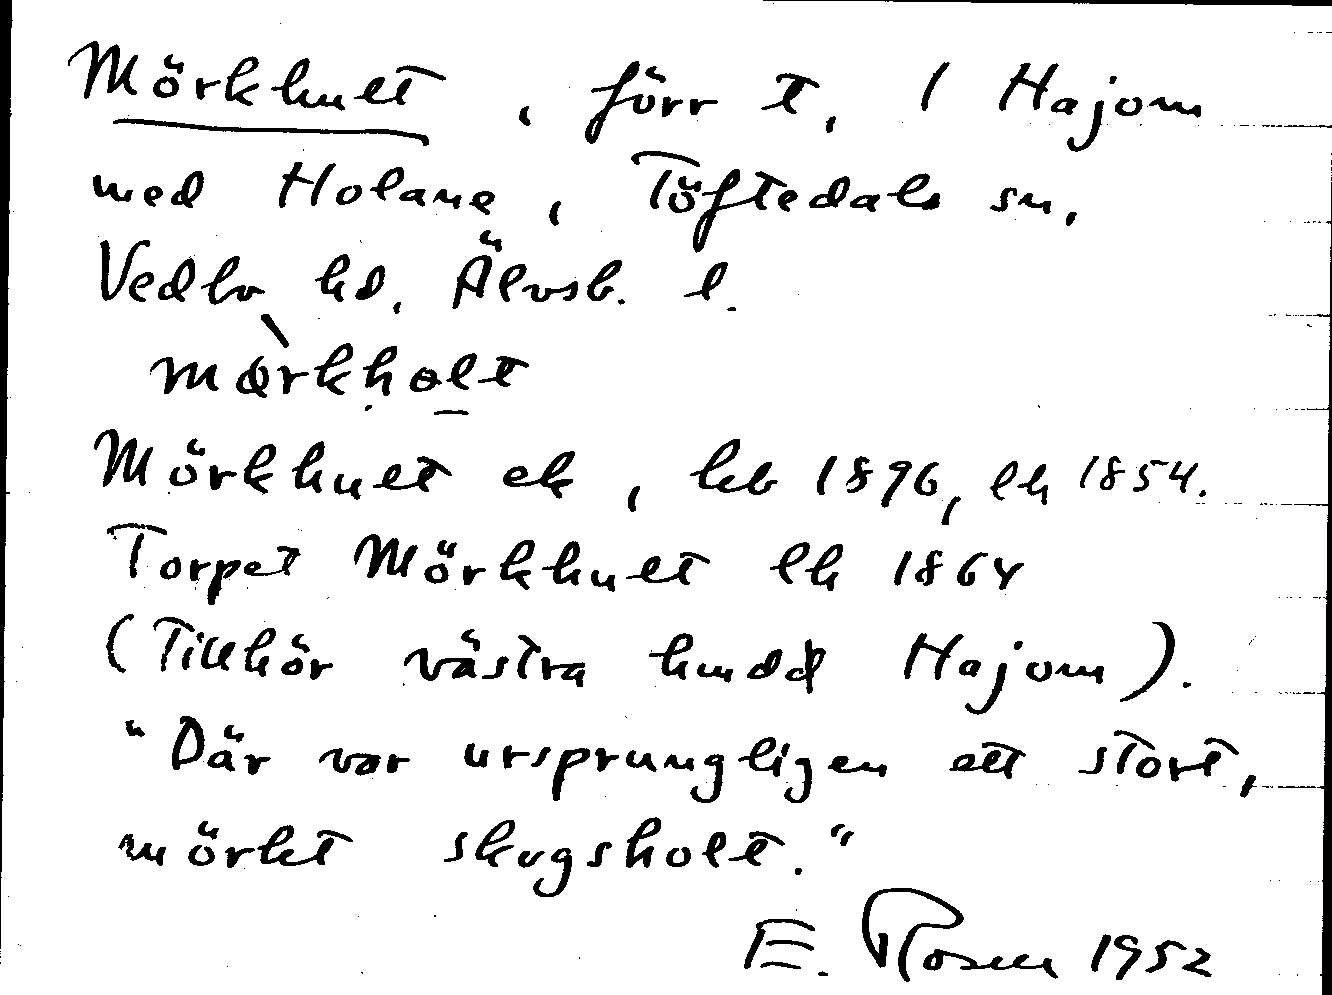 Mörkhult, förr t, 1 Hajom
med Holane, Töftedals sn,
Vedbo hd. Älvsb. l.
mörkholt
Mörkhult ek, kb 1896, lh 1854.
Torpet Mörkhult lh 1864
(Tillhör västra hmdd Hajom).
"Där var ursprungligen ett stort,
mörkt skogsholt."
E. Rosen 1952